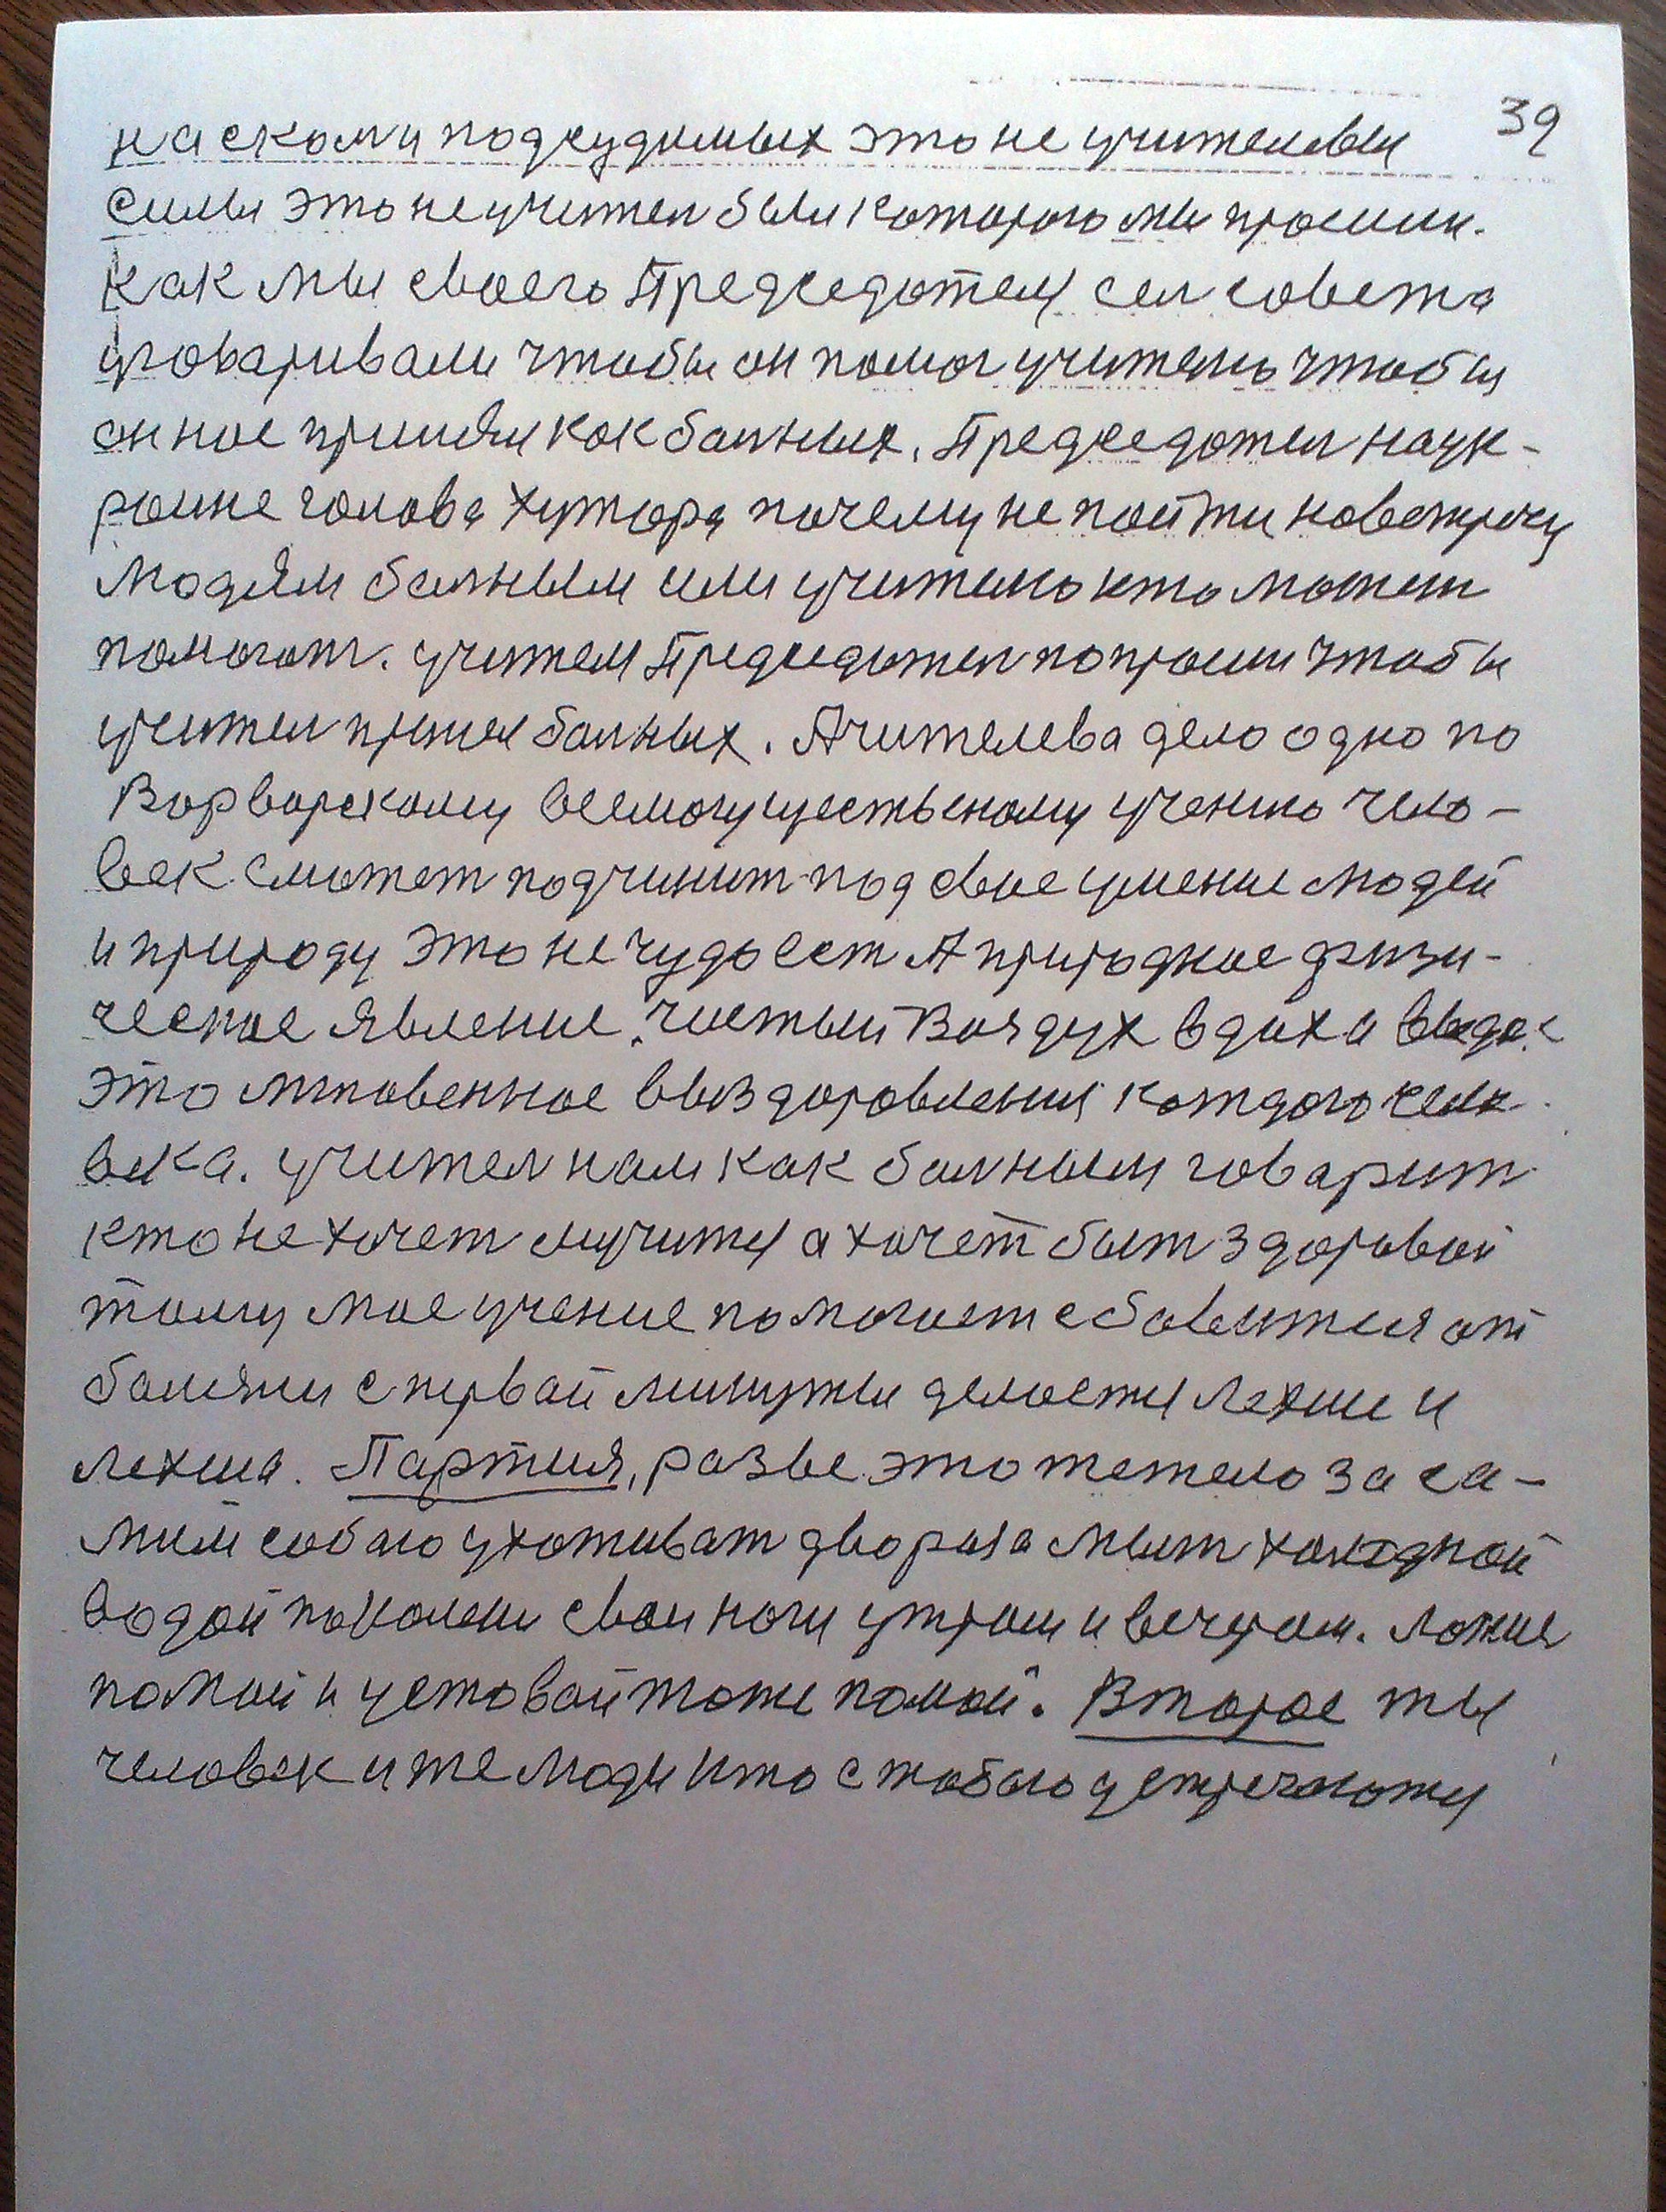 39
на скоми подсудимых это не учителевы
силы это не учител был которого мы просили.
Как мы своего Председателя сел совета
уговаривали чтобы он помог учителю чтобы
он нас принял как балных. Председател наук-
раине голова хутора почему не пойти навстречу
людям балным или учителю кто может
помогат. учителя Председател попросил чтобы
учител принял балных. Ачителева дело одно по
Ворворскому всемогуществьеному учению чело-
век сможет подчинит под свое умение людей
и природу это не чудо ест А природное физи-
ческое явление. чистый Воздух вдох и выдох
это мгновенное выздоровления каждого чело-
века. учител нам как балным говарит
кто не хочет мучится а хочет быт здоровой
тому мое учение помогает сбавится от
балезни с первой минуты делается легше и
легша. Партия, разве это тежело за са-
мим собаю ухаживат двораза мыт холодной
водой по колени свои ноги утром и вечером. ложис
помой и уставай тоже помой. Второе ты
человек и те люди што с табою устречаются